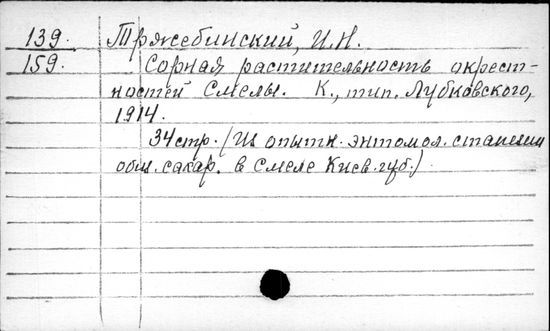 139. Тржебинский, И.Н.
159. Сорная растительность окрест-
ностей Смелы. К., тип. Лубковского,
1914.
34 стр. (Из опытн. энтомол. станции
общ. сахар. в Смеле Киев. губ.)